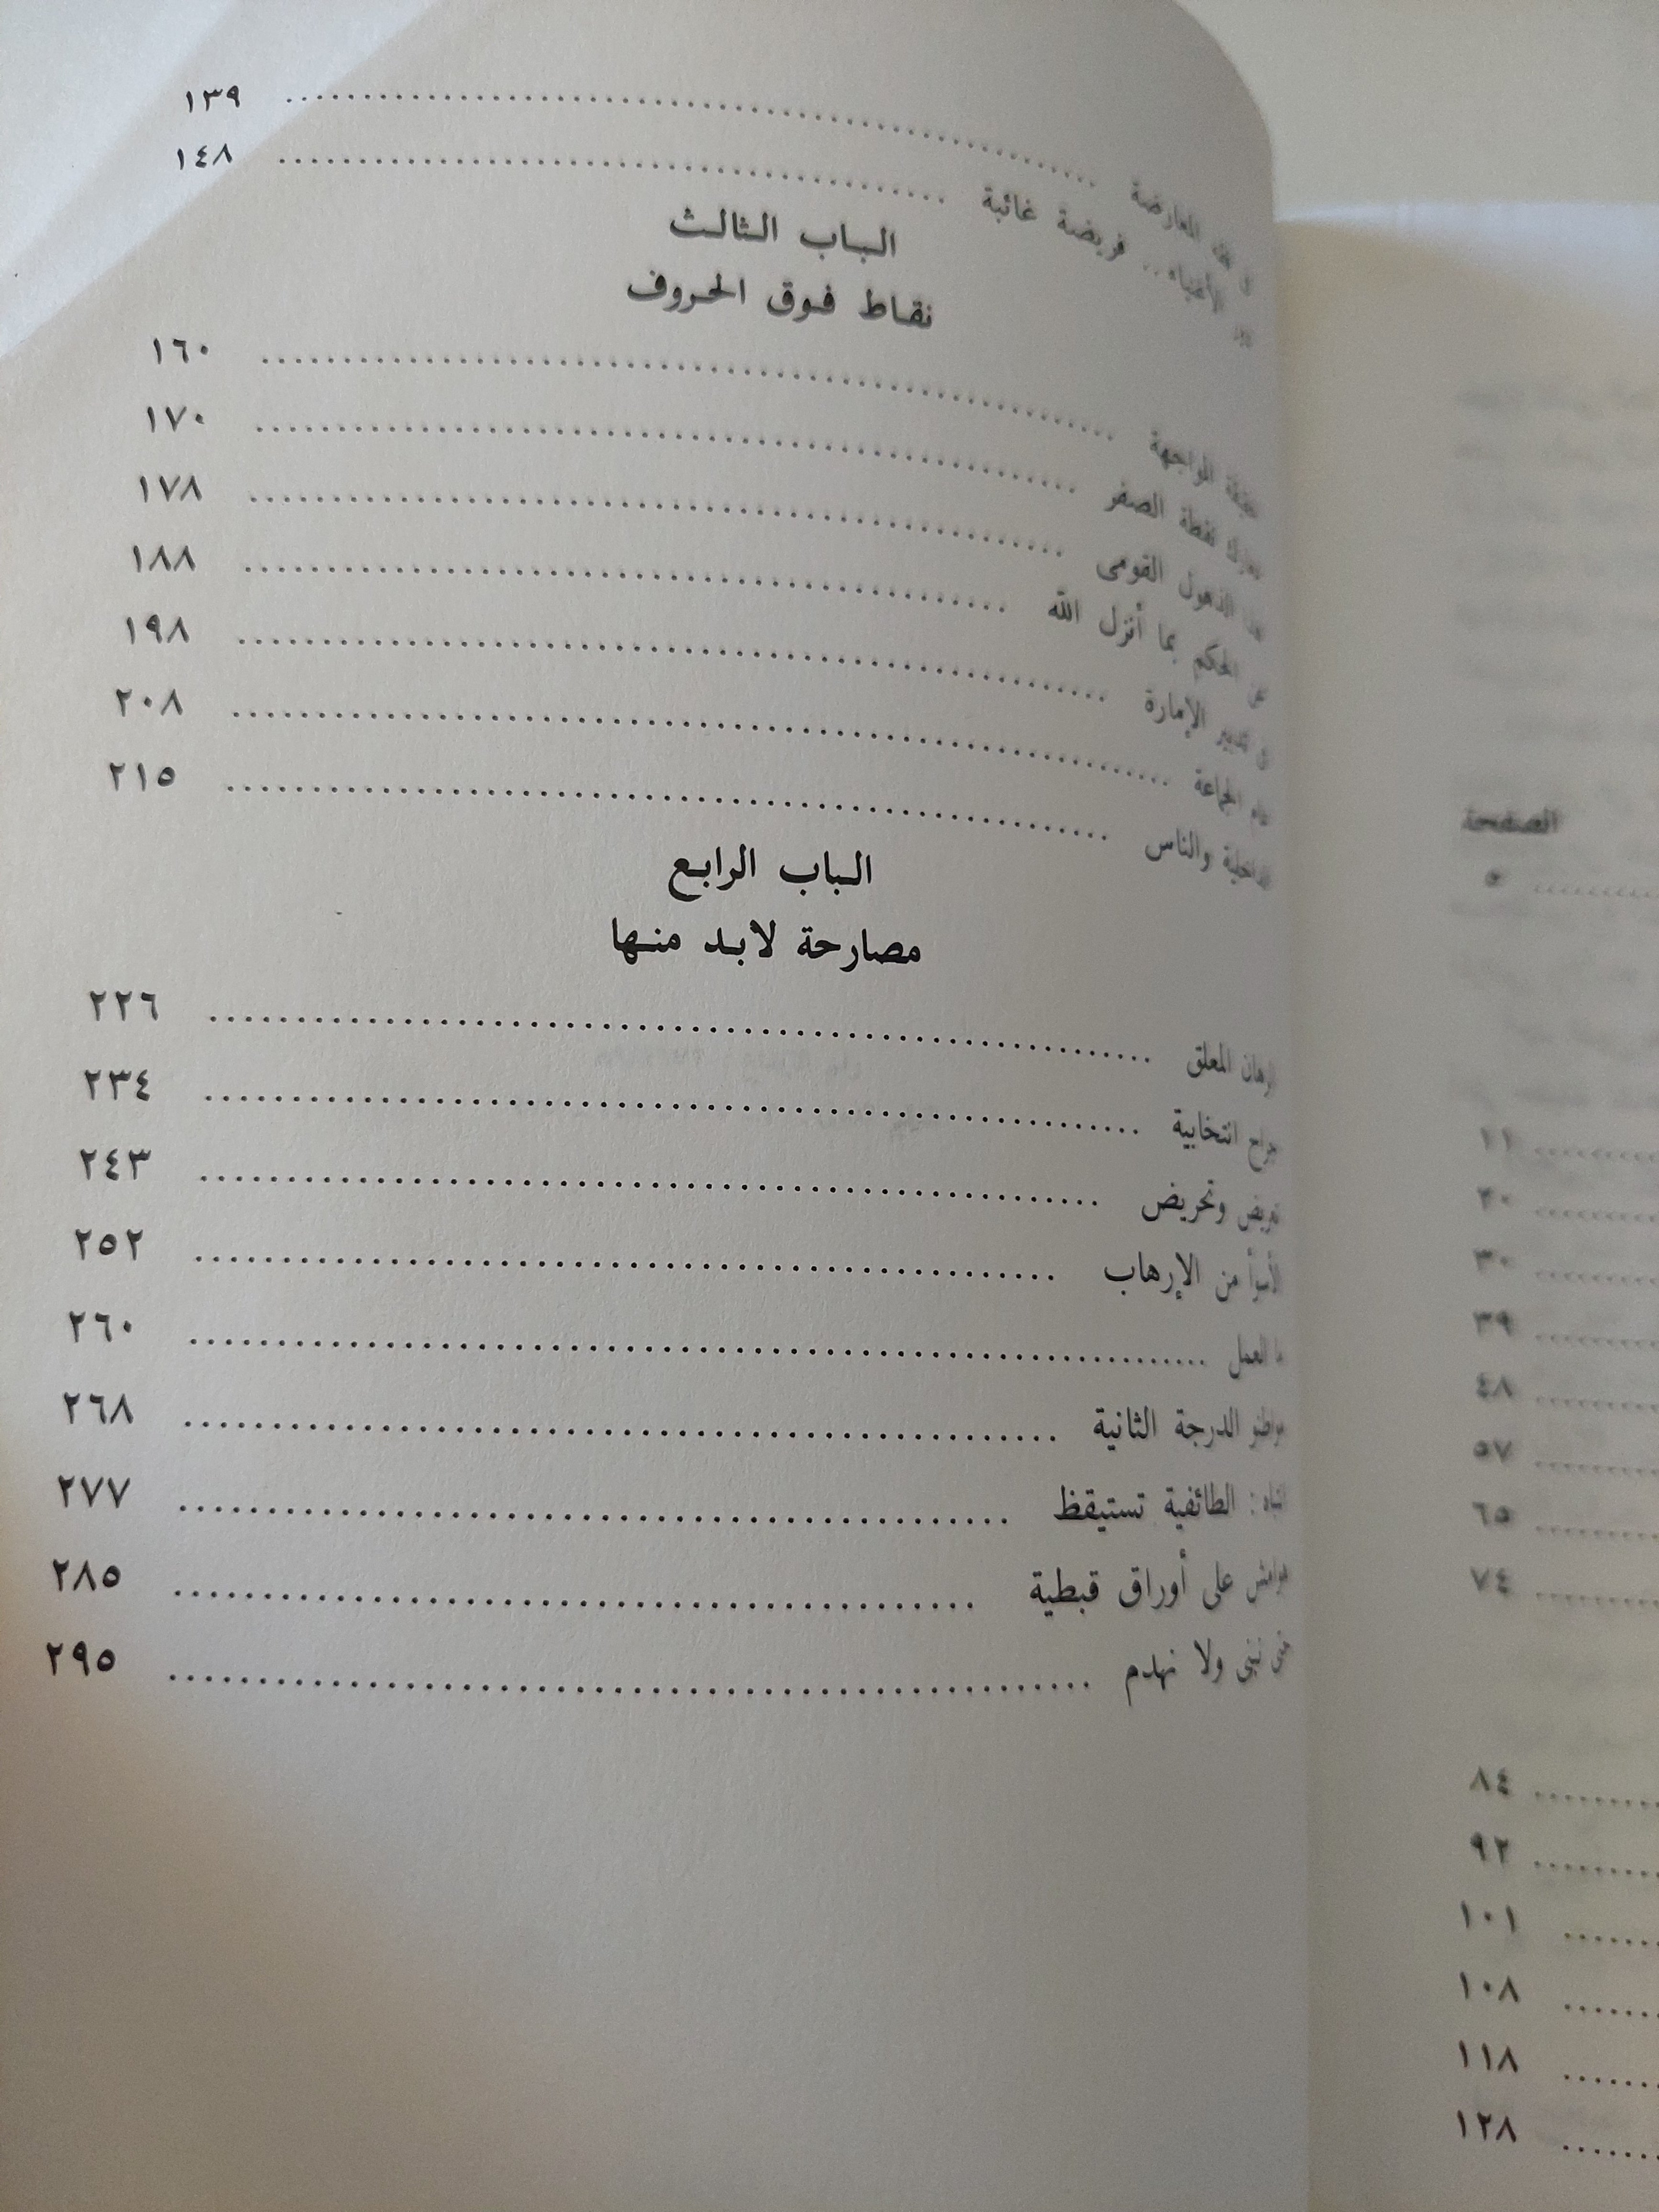 المعارضة ........ ١٣٩
الأغنياء .. فريضة غائبة ........ ١٤٨
الباب الثالث
نقاط فوق الحروف
المواجهة ........ ١٦٠
نقطة الصفر ........ ١٧٠
الذهول القومى ........ ١٧٨
الحكم بما أنزل الله ........ ١٨٨
الإمارة ........ ١٩٨
الجماعة ........ ٢٠٨
الداخلية والناس ........ ٢١٥
الباب الرابع
مصارحة لابد منها
الرهان المعلق ........ ٢٢٦
جراح انتخابية ........ ٢٣٤
وتحريض ........ ٢٤٣
الأسوأ من الإرهاب ........ ٢٥٢
ما العمل ........ ٢٦٠
مواطنو الدرجة الثانية ........ ٢٦٨
انتباه : الطائفية تستيقظ ........ ٢٧٧
هوامش على أوراق قبطية ........ ٢٨٥
نبنى ولا نهدم ........ ٢٩٥
الصفحة
٥
١١
٢٠
٣٠
٣٩
٤٨
٥٧
٦٥
٧٤
٨٤
٩٢
١٠١
١٠٨
١١٨
١٢٨